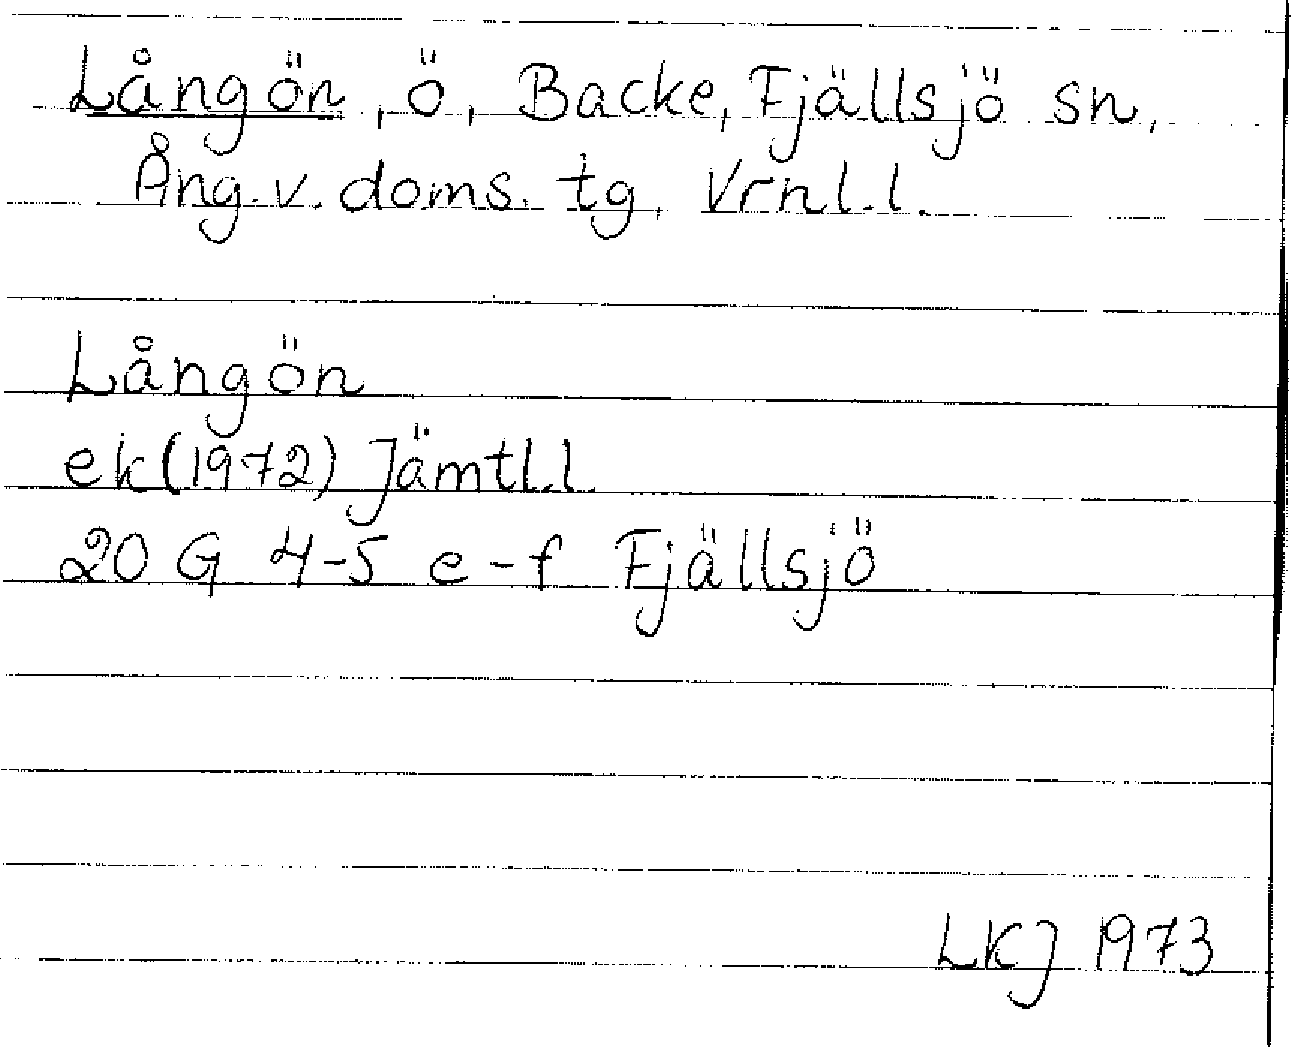 Långön, ö, Backe, Fjällsjö sn,
Ång. v. doms. tg, Vrnl. l.
Långön
ek (1972) Jämtl. l
20 G 4-5 e-f Fjällsjö
LKJ 1973